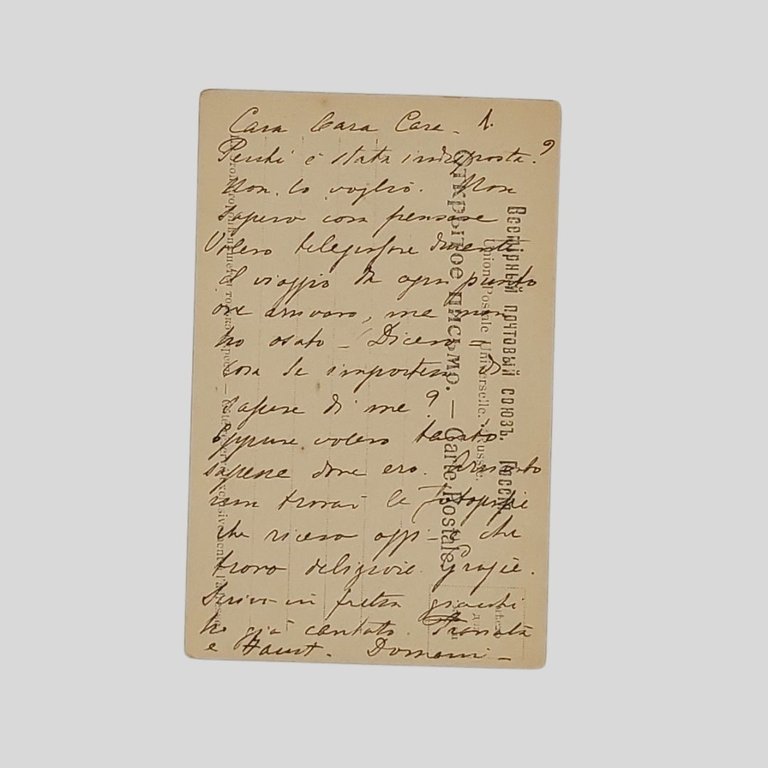 Cara Cara Cara - 1.
Perchè è stata indisposta?
Non lo voglio. Non
sapevo cosa pensare
Volevo telegrafare durante
il viaggio da ogni punto
ove arrivavo, me non
ho osato - Dicevo =
cosa le importerà di
sapere di me?
Eppure volevo tanto
sapesse dove ero.
non trovai le fotografie
che ricevo oggi - e che
trovo deliziose. Grazie.
Scrivo in fretta giacchi
ho già cantato. Traviata
e Faust. Domani -
Всемірный почтовый союзъ. Россія.
Union Postale Universelle. Russie.
Открытое письмо. — Carte Postale.